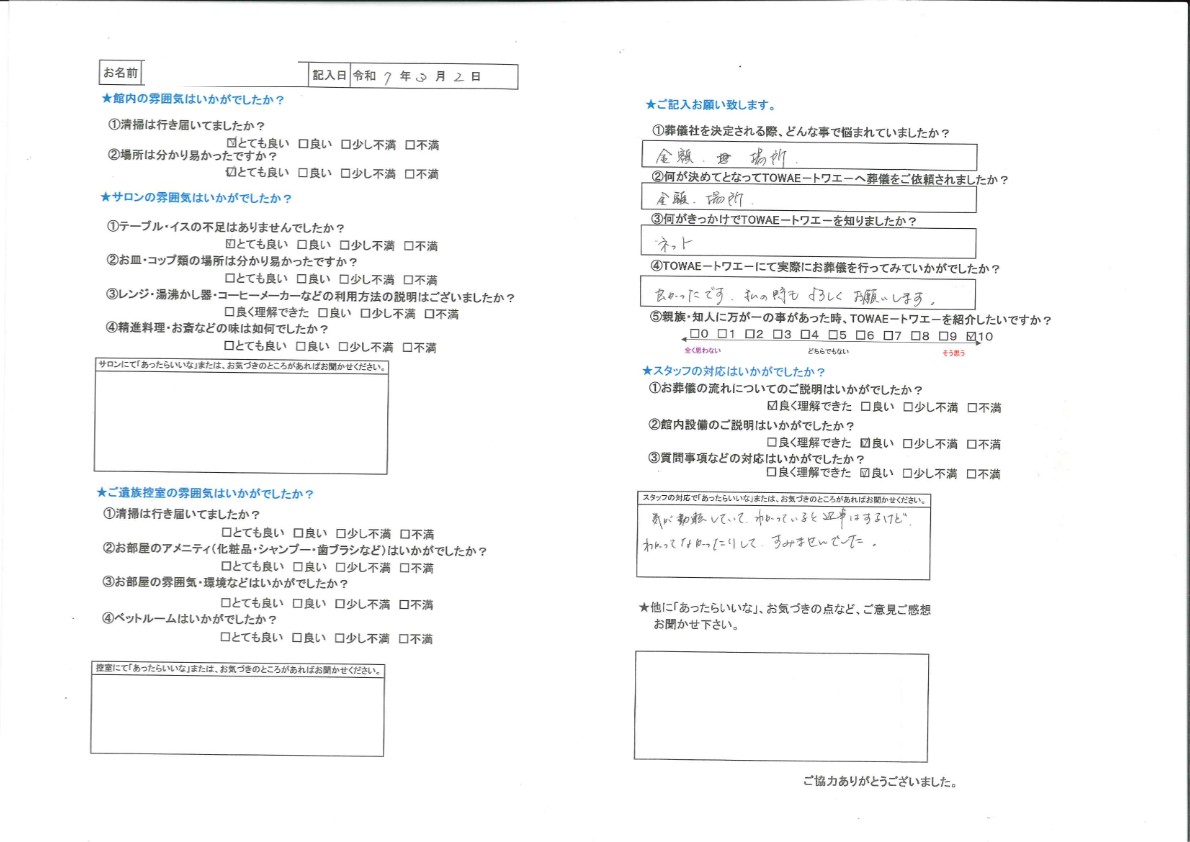 お名前
記入日 令和 7 年 3 月 2 日
★館内の雰囲気はいかがでしたか?
①清掃は行き届いてましたか?
☑とても良い □良い □少し不満 □不満
②場所は分かり易かったですか?
☑とても良い □良い □少し不満 □不満
★サロンの雰囲気はいかがでしたか?
①テーブル・イスの不足はありませんでしたか?
☑とても良い □良い □少し不満 □不満
②お皿・コップ類の場所は分かり易かったですか?
□とても良い □良い □少し不満 □不満
③レンジ・湯沸かし器・コーヒーメーカーなどの利用方法の説明はございましたか?
□良く理解できた □良い □少し不満 □不満
④精進料理・お斎などの味は如何でしたか?
□とても良い □良い □少し不満 □不満
サロンにて「あったらいいな」または、お気づきのところがあればお聞かせください。
★ご遺族控室の雰囲気はいかがでしたか?
①清掃は行き届いてましたか?
□とても良い □良い □少し不満 □不満
②お部屋のアメニティ(化粧品・シャンプー・歯ブラシなど)はいかがでしたか?
□とても良い □良い □少し不満 □不満
③お部屋の雰囲気・環境などはいかがでしたか?
□とても良い □良い □少し不満 □不満
④ペットルームはいかがでしたか?
□とても良い □良い □少し不満 □不満
控室にて「あったらいいな」または、お気づきのところがあればお聞かせください。
★ご記入お願い致します。
①葬儀社を決定される際、どんな事で悩まれていましたか?
金額、場所、
②何が決めてとなってTOWAEートワエーへ葬儀をご依頼されましたか?
金額、場所、
③何がきっかけでTOWAEートワエーを知りましたか?
ネット
④TOWAEートワエーにて実際にお葬儀を行ってみていかがでしたか?
良かったです、私の時もよろしくお願いします。
⑤親族・知人に万が一の事があった時、TOWAEートワエーを紹介したいですか?
□0 □1 □2 □3 □4 □5 □6 □7 □8 □9 ☑10
全く思わない どちらでもない そう思う
★スタッフの対応はいかがでしたか?
①お葬儀の流れについてのご説明はいかがでしたか?
☑良く理解できた □良い □少し不満 □不満
②館内設備のご説明はいかがでしたか?
□良く理解できた ☑良い □少し不満 □不満
③質問事項などの対応はいかがでしたか?
□良く理解できた ☑良い □少し不満 □不満
スタッフの対応で「あったらいいな」または、お気づきのところがあればお聞かせください。
気が動転していて、わかっていると返事はするけど、
わかってなかったりして、すみませんでした。
★他に「あったらいいな」、お気づきの点など、ご意見ご感想
お聞かせ下さい。
ご協力ありがとうございました。